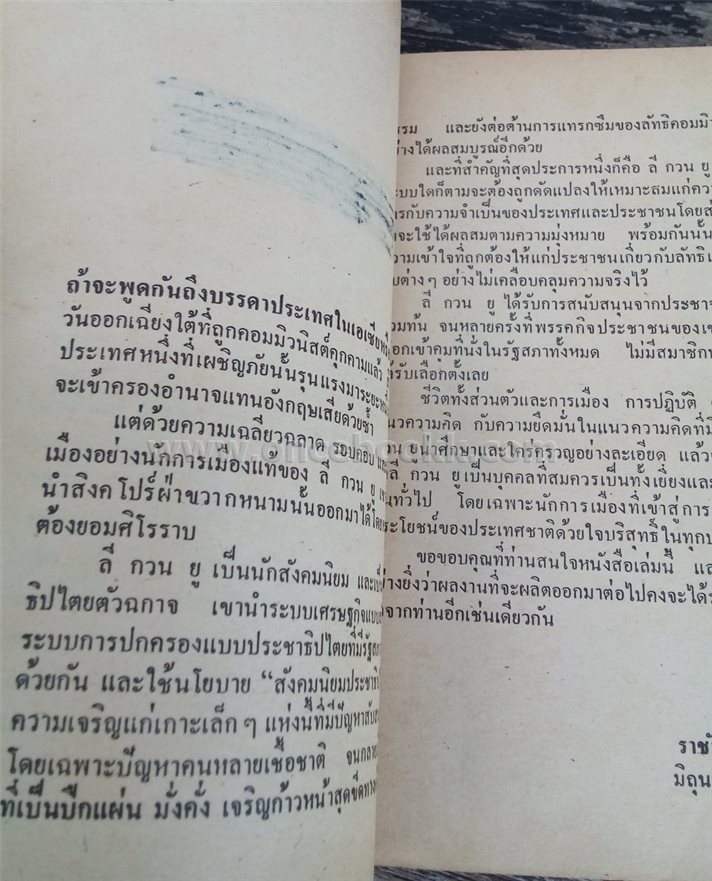 ถ้าจะพูดกันถึงบรรดาประเทศในเอเซีย
วันออกเฉียงใต้ที่ถูกคอมมิวนิสต์คุกคามแล้ว
ประเทศหนึ่งที่เผชิญภัยนั้นรุนแรงมาระยะ
จะเข้าครองอำนาจแทนอังกฤษเสียด้วยซ้ำ
แต่ด้วยความเฉลียวฉลาด รอบคอบ
เมืองอย่างนักการเมืองแท้ของ ลี กวน ยู
นำสิงคโปร์ฝ่าขวากหนามนั้นออกมาได้โดย
ต้องยอมศิโรราบ
ลี กวน ยู เป็นนักสังคมนิยม และ
ธิปไตยตัวฉกาจ เขานำระบบเศรษฐกิจแบบ
ระบบการปกครองแบบประชาธิปไตยที่มีรัฐ
ด้วยกัน และใช้นโยบาย “สังคมนิยมประชาธิป
ความเจริญแก่เกาะเล็กๆ แห่งนี้ที่มีปัญหา
โดยเฉพาะปัญหาคนหลายเชื้อชาติ จนกลาย
ที่เป็นปึกแผ่น มั่งคั่ง เจริญก้าวหน้าสุดขีดทาง
รรม และยังต่อต้านการแทรกซึมของลัทธิคอมมิว
ย่างได้ผลสมบูรณ์อีกด้วย
และที่สำคัญที่สุดประการหนึ่งก็คือ ลี กวน ยู
ระบบใดก็ตามจะต้องถูกดัดแปลงให้เหมาะสมแก่ความ
ารกับความจำเป็นของประเทศและประชาชนโดยส่
จะใช้ได้ผลสมตามความมุ่งหมาย พร้อมกันนั้น
วามเข้าใจที่ถูกต้องให้แก่ประชาชนเกี่ยวกับลัทธิ
บต่างๆ อย่างไม่เคลือบคลุมความจริงไว้
ลี กวน ยู ได้รับการสนับสนุนจากประชา
วมท้น จนหลายครั้งที่พรรคกิจประชาชนของเข
อกเข้าคุมที่นั่งในรัฐสภาทั้งหมด ไม่มีสมาชิก
ด้รับเลือกตั้งเลย
ชีวิตทั้งส่วนตัวและการเมือง การปฏิบัติ
นวความคิด กับความยึดมั่นในแนวความคิดที่มี
วน ยูน่าศึกษาและใคร่ครวญอย่างละเอียด แล้ว
ลี กวน ยูเป็นบุคคลที่สมควรเป็นทั้งเยี่ยงและ
นทั่วไป โดยเฉพาะนักการเมืองที่เข้าสู่การ
ระโยชน์ของประเทศชาติด้วยใจบริสุทธิ์ในทุกบ
ขอขอบคุณที่ท่านสนใจหนังสือเล่มนี้ แล
ย่างยิ่งว่าผลงานที่จะผลิตออกมาต่อไปคงจะได้ร
จากท่านอีกเช่นเดียวกัน
ราชั
มิถุน